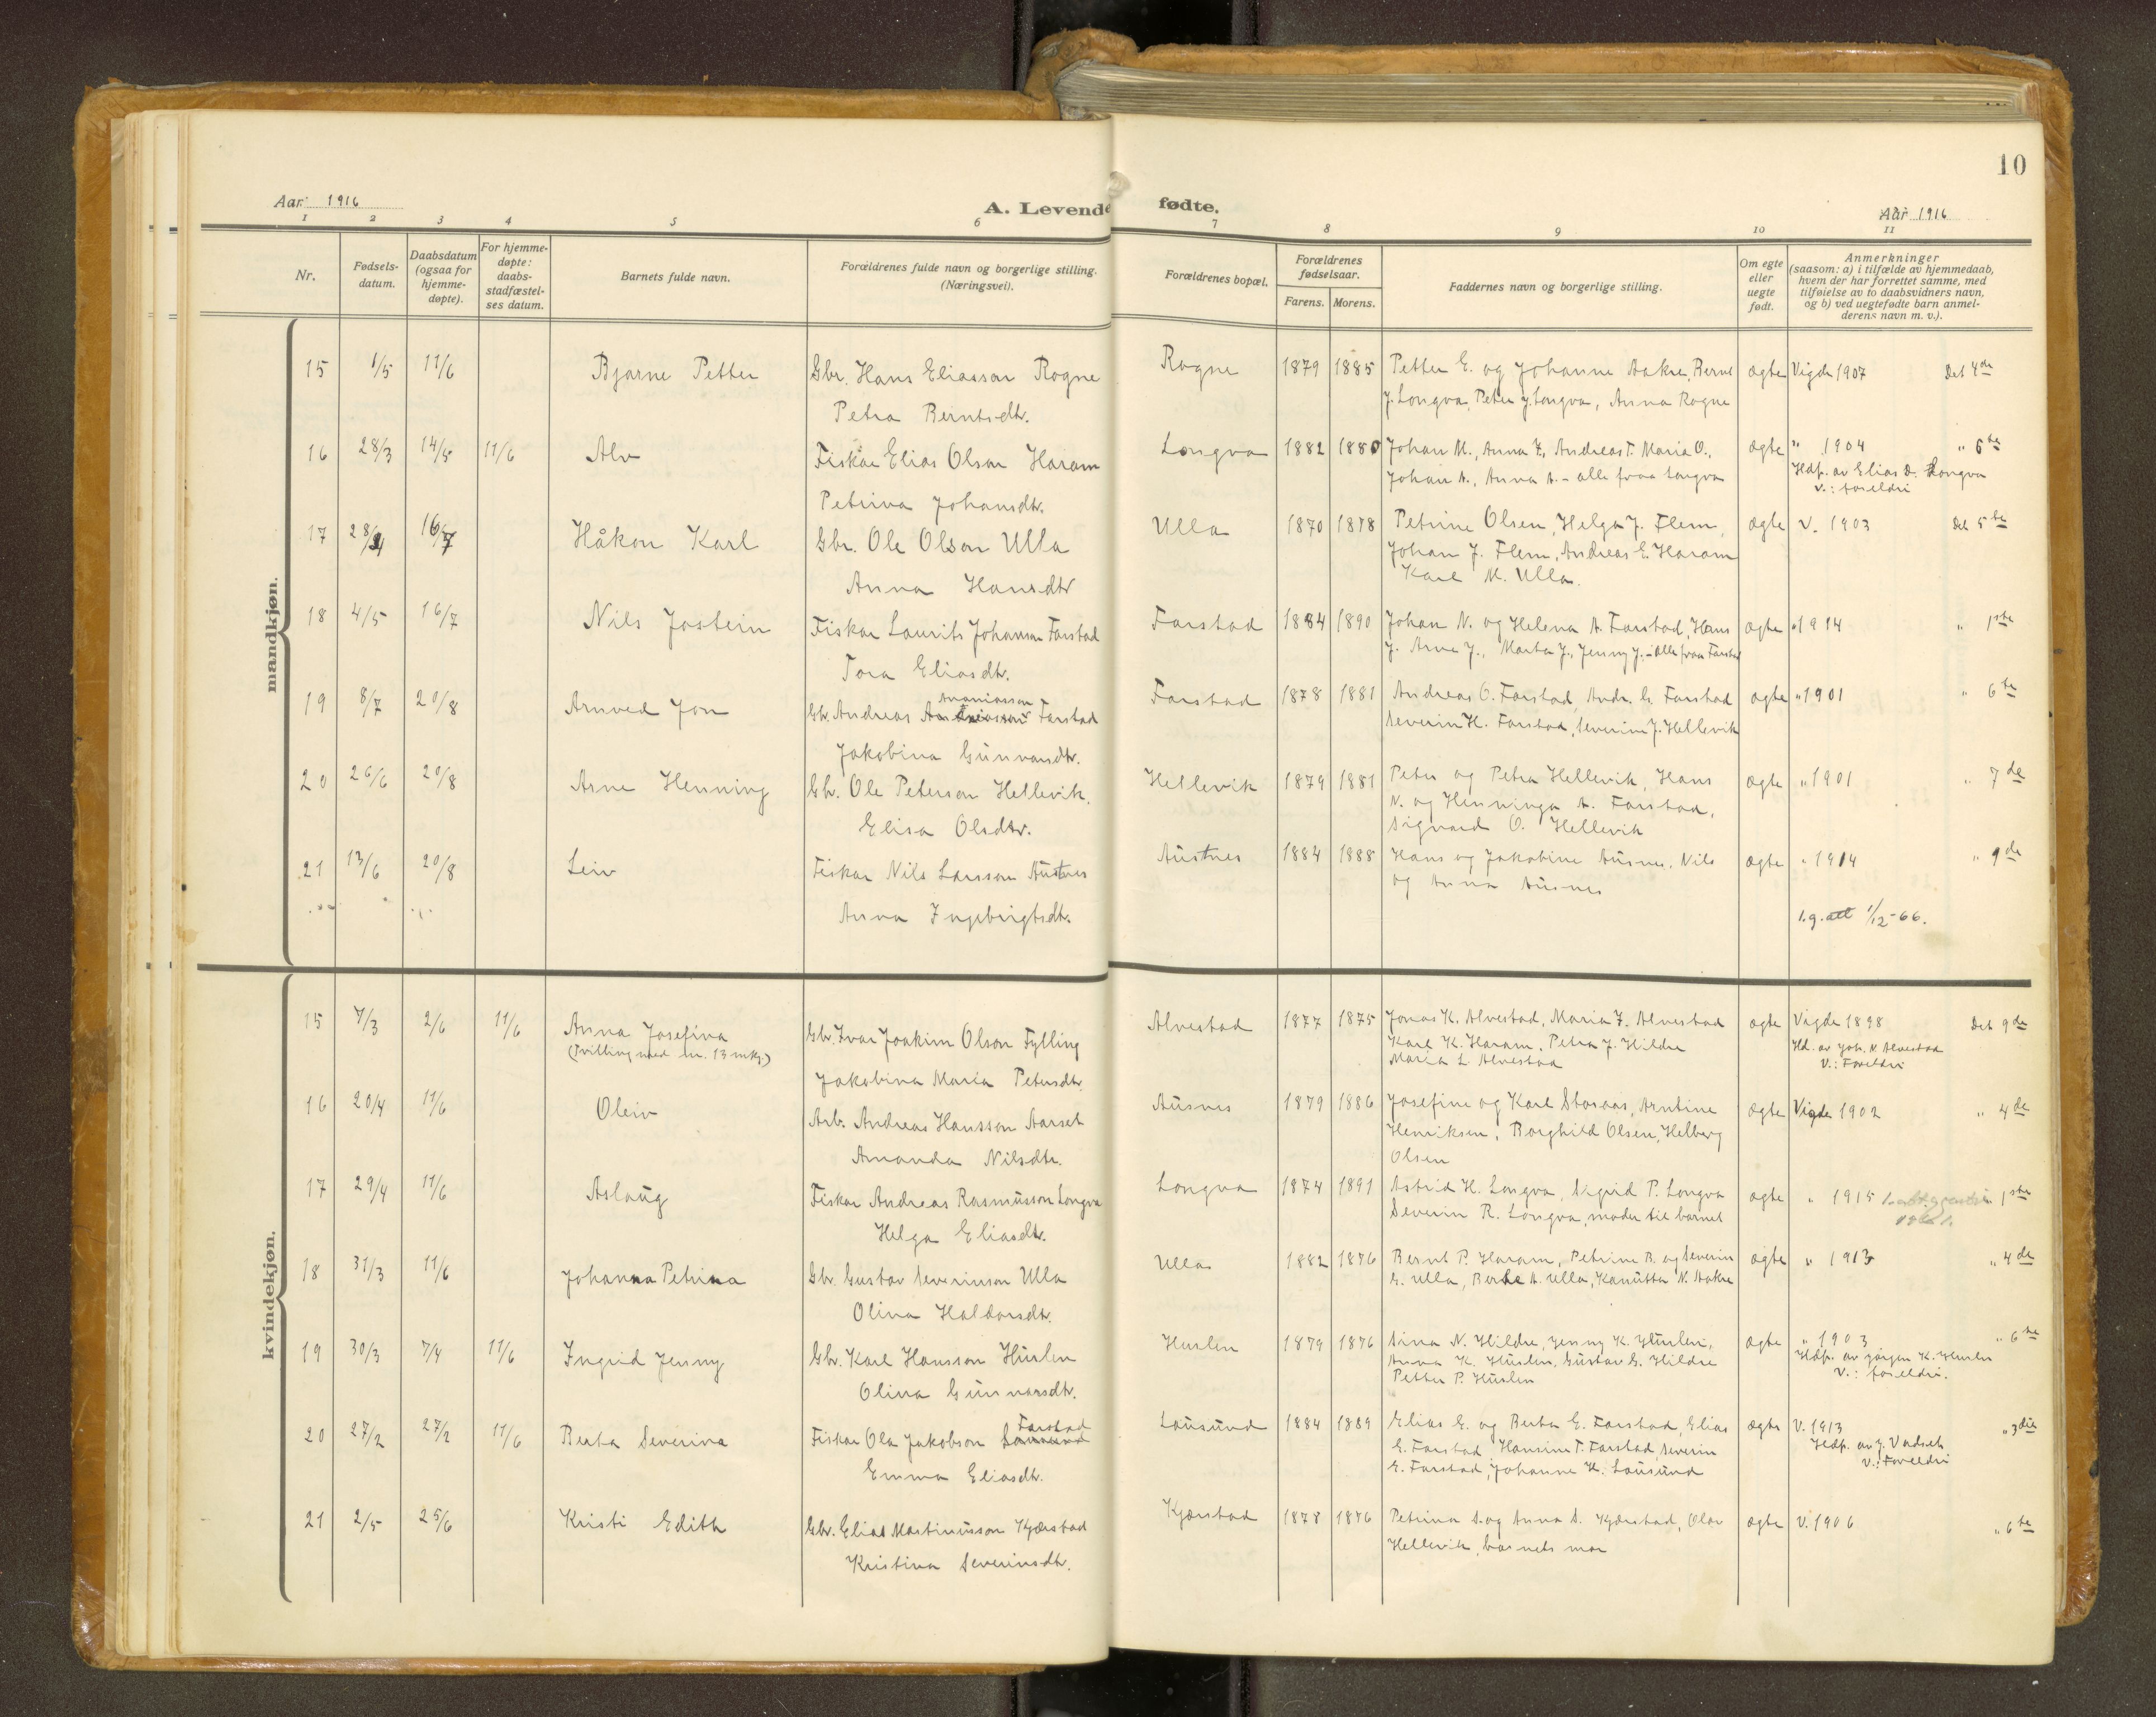 10
Aar 1916
A. Levende fødte.
Aar 1916
1 2 3 4 5 6 7 8 9 10 11
Nr.
Fødsels-
datum.
Daabsdatum
(ogsaa for
hjemme-
døpte).
For hjemme-
døpte:
daabs-
stadfæstel-
ses datum.
Barnets fulde navn.
Forældrenes fulde navn og borgerlige stilling.
(Næringsvei).
Forældrenes bopæl.
Forældrenes
fødselsaar.
Farens. Morens.
Faddernes navn og borgerlige stilling.
Om egte
eller
uegte
født.
Anmerkninger
(saasom: a) i tilfælde av hjemmedaab,
hvem der har forrettet samme, med
tilføielse av to daabsvidners navn,
og b) ved uegtefødte barn anmel-
derens navn m. v.).
mandkjøn.
15 1/5 11/6 Bjarne Petter Gbr. Hans Eliasson Rogne Rogne 1879 1885 Petter E. og Johanne Aakre, Bernt ægte Vigde 1907 Det 4de
Petra Berntsdtr. J. Longva, Peter J. Longva, Anna Rogne
16 28/3 14/5 11/6 Alv Fiskar Elias Olson Haram Longva 1882 1880 Johan M., Anna Z., Andreas T. Maria O., ægte " 1904 " 6te
Petrina Johansdtr. Johan A., Anna A. - alle fraa Longva Hdp. av Elias D. Longva
V.: foreldri
17 28/4 16/7 Håkon Karl Gbr. Ole Olson Ulla Ulla 1870 1878 Petrine Olsen, Helga J. Flem, ægte V. 1903 Det 5te
Anna Hansdtr Johan J. Flem, Andreas E. Haram
Karl M. Ulla.
18 4/5 16/7 Nils Jostein Fiskar Laurits Johanson Farstad Farstad 1884 1890 Johan N. og Helena A. Farstad, Hans ægte " 1914 " 1ste
Tora Eliasdtr. J. Arne J., Marta J., Jenny J. - alle fraa Farstad
19 8/7 20/8 Arnved Jon Gbr. Andreas Ananiasson Farstad Farstad 1878 1881 Andreas O. Farstad, Andr. G. Farstad ægte " 1901 " 6te
Jakobina Gunnarsdtr. Severin H. Farstad, Severine J. Hellevik
20 26/6 20/8 Arne Henning Gbr. Ole Peterson Hellevik. Hellevik 1879 1881 Peter og Petra Hellevik, Hans ægte " 1901 " 7de
Elisa Olsdtr. N. og Henninga A. Farstad,
Sigvard O. Hellevik
21 13/6 20/8 Leiv Fiskar Nils Larsson Austnes Austnes 1884 1888 Hans og Jakobine Ausnes, Nils ægte " 1914 " 9de
Anna Ingebrigtsdtr. og Anna Ausnes
l.g.att 1/12-66.
kvindekjøn.
15 7/3 2/6 11/6 Anna Josefina Gbr. Ivar Joakim Olson Fylling Alvestad 1877 1875 Jonas K. Alvestad, Maria J. Alvestad ægte Vigde 1898 Det 9de
(Tvilling med nr. 13 mkj.) Jakobina Maria Petersdtr. Karl K. Haram, Petra J. Hildre Hd. av Joh. N. Alvestad
Maria L. Alvestad V.: Foreldri
16 20/4 11/6 Oleiv Arb. Andreas Hansson Aarset Ausnes 1879 1886 Josefine og Karl Storaas, Arntine ægte Vigde 1902 " 4de
Amanda Nilsdtr. Henriksen, Borghild Olsen, Helberg
Olsen
17 29/4 11/6 Aslaug Fiskar Andreas Rasmusson Longva Longva 1874 1891 Astrid H. Longva, Sigrid P. Longva ægte " 1915 " 1ste
Helga Eliasdtr. Severin R. Longva, moder til barnet
18 31/3 11/6 Johanna Petrina Gbr. Gustav Severinson Ulla Ulla 1882 1876 Bernt P. Haram, Petrine B. og Severin ægte " 1913 " 4de
Olina Haldorsdtr. G. Ulla, Berte A. Ulla, Kanutta N. Aakre
19 30/3 7/4 11/6 Ingrid Jenny Gbr. Karl Hansson Huslen Huslen 1879 1876 Sina N. Hildre, Jenny K. Huslen, ægte " 1903 " 6te
Olina Gunnarsdtr. Anna K. Huslen, Gustav G. Hildre Hdp. av Jørgen K. Huslen
Petter P. Huslen V.: foreldri.
20 27/2 27/2 11/6 Berta Severina Fiskar Ola Jakobson Farstad Lausund 1884 1889 Elias E. og Berta E. Farstad, Elias ægte V. 1913 " 3die
Emma Eliasdtr. E. Farstad, Hansine T. Farstad, Severin Hdp. av J. Vadset
E. Farstad, Johanne H. Lausund V.: Foreldri
21 2/5 25/6 Kristi Edith Gbr. Elias Martinusson Kjærstad Kjærstad 1878 1876 Petrina S. og Anna S. Kjærstad, Olav ægte V. 1906 " 6te
Kristina Severinsdtr. Hellevik, barnets mor